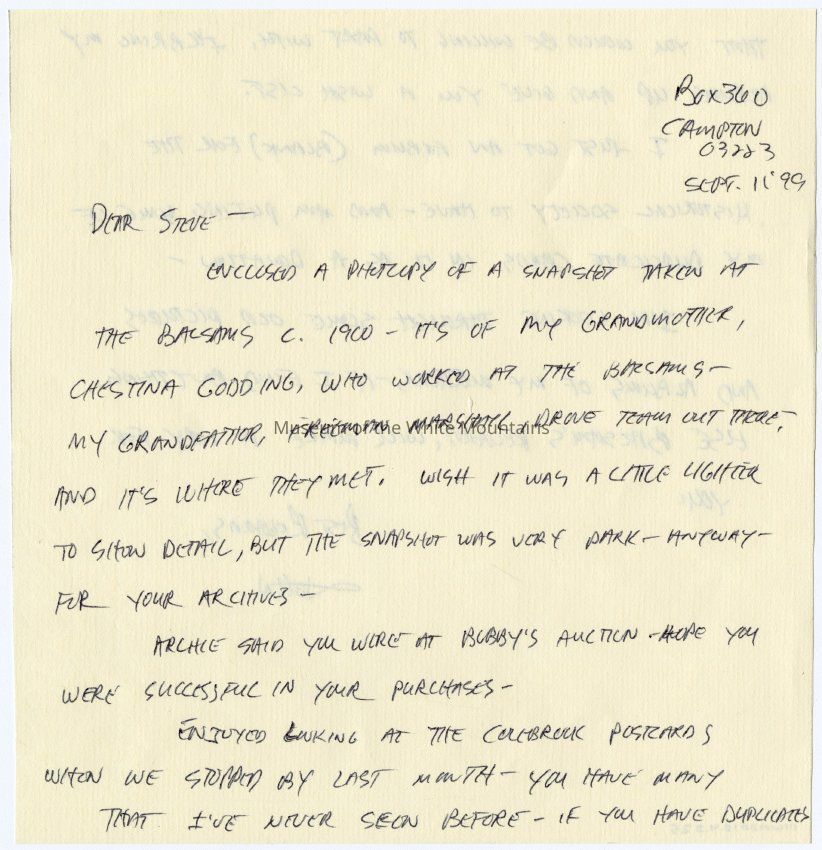 Box 360
CAMPTON
03223
SEPT. 11 '99
DEAR STEVE —
ENCLOSED A PHOTOCOPY OF A SNAPSHOT TAKEN AT
THE BALSAMS C. 1900 - IT'S OF MY GRANDMOTHER,
CHESTINA GODDING, WHO WORKED AT THE BALSAMS -
MY GRANDFATHER, MARSHALL, DROVE TEAM OUT THERE,
Museum of the White Mountains
AND IT'S WHERE THEY MET. WISH IT WAS A LITTLE LIGHTER
TO SHOW DETAIL, BUT THE SNAPSHOT WAS VERY DARK - ANYWAY -
FOR YOUR ARCHIVES -
ARCHIE SAID YOU WERE AT BOBBY'S AUCTION - HOPE YOU
WERE SUCCESSFUL IN YOUR PURCHASES -
ENJOYED LOOKING AT THE COLEBROOK POSTCARDS
WHEN WE STOPPED BY LAST MONTH - YOU HAVE MANY
THAT I'VE NEVER SEEN BEFORE - IF YOU HAVE DUPLICATES